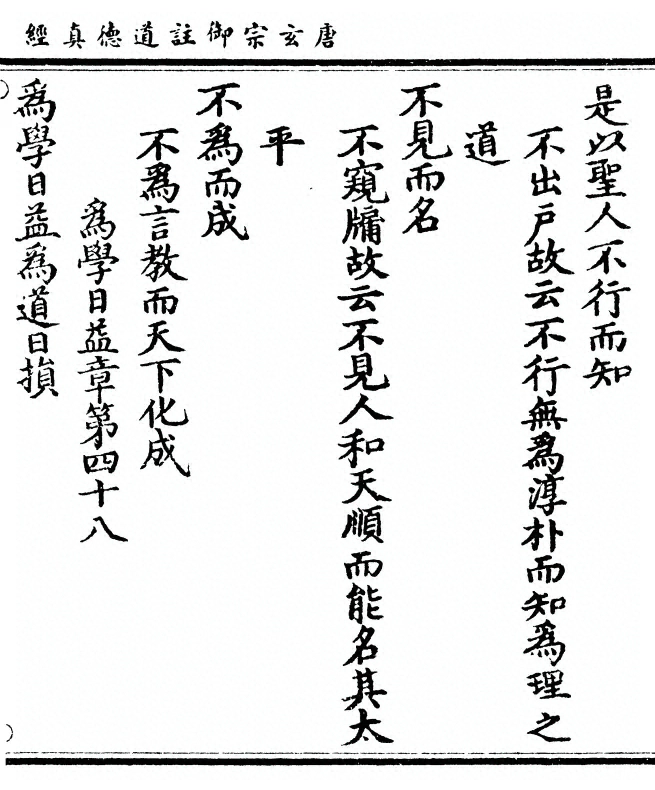 唐玄宗御註道德真經
是以聖人不行而知
不出戶故云不行無為淳朴而知為理之
道
不見而名
不窺牖故云不見人和天順而能名其太
平
不為而成
不為言教而天下化成
為學日益章第四十八
為學日益為道日損